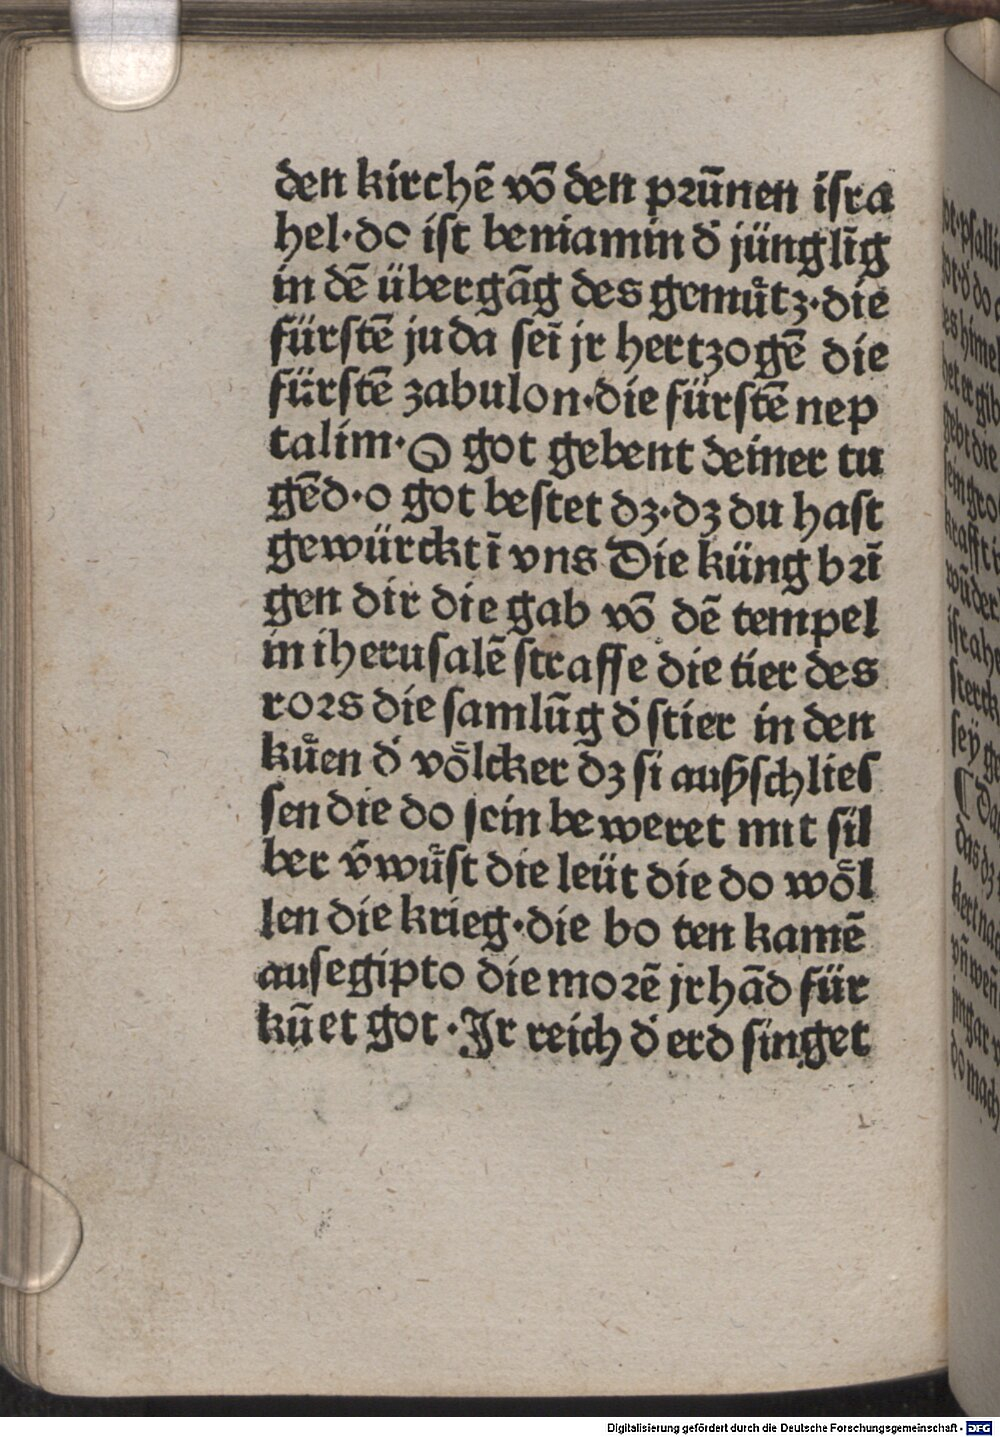 den kirchē vō den prūnen isra
hel·do ist beniamin d̄ jünglīg
in dē übergāg des gemuͤtz·die
fürstē juda seī jr hertzogē die
fürstē zabulon·die fürstē nep
talim·O got gebent deiner tu
gēd·o got bestet dz·dz du hast
gewürckt ī vns Die küng brī
gen dir die gab vō dē tempel
in iherusalē straffe die tier des
rors die samlūg d̄ stier in den
kuͤen d̄ voͤlcker dz si außschlies
sen die do sein beweret mit sil
ber v̄wuͤst die leüt die do woͤl
len die krieg·die bo ten kamē
ausegipto die morē jr hād für
kūet got·Jr reich d̄ erd singet
Digitalisierung gefördert durch die Deutsche Forschungsgemeinschaft - DFG